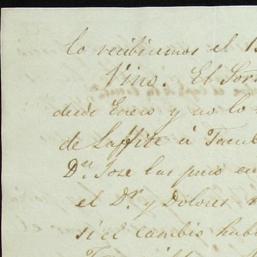 lo recibiremos el 1
Vino. El Sor
desde Enero y no lo
de Laffite á
Dn. Jose Luis puso en
el Dr. y Dolores
si el cambio hub